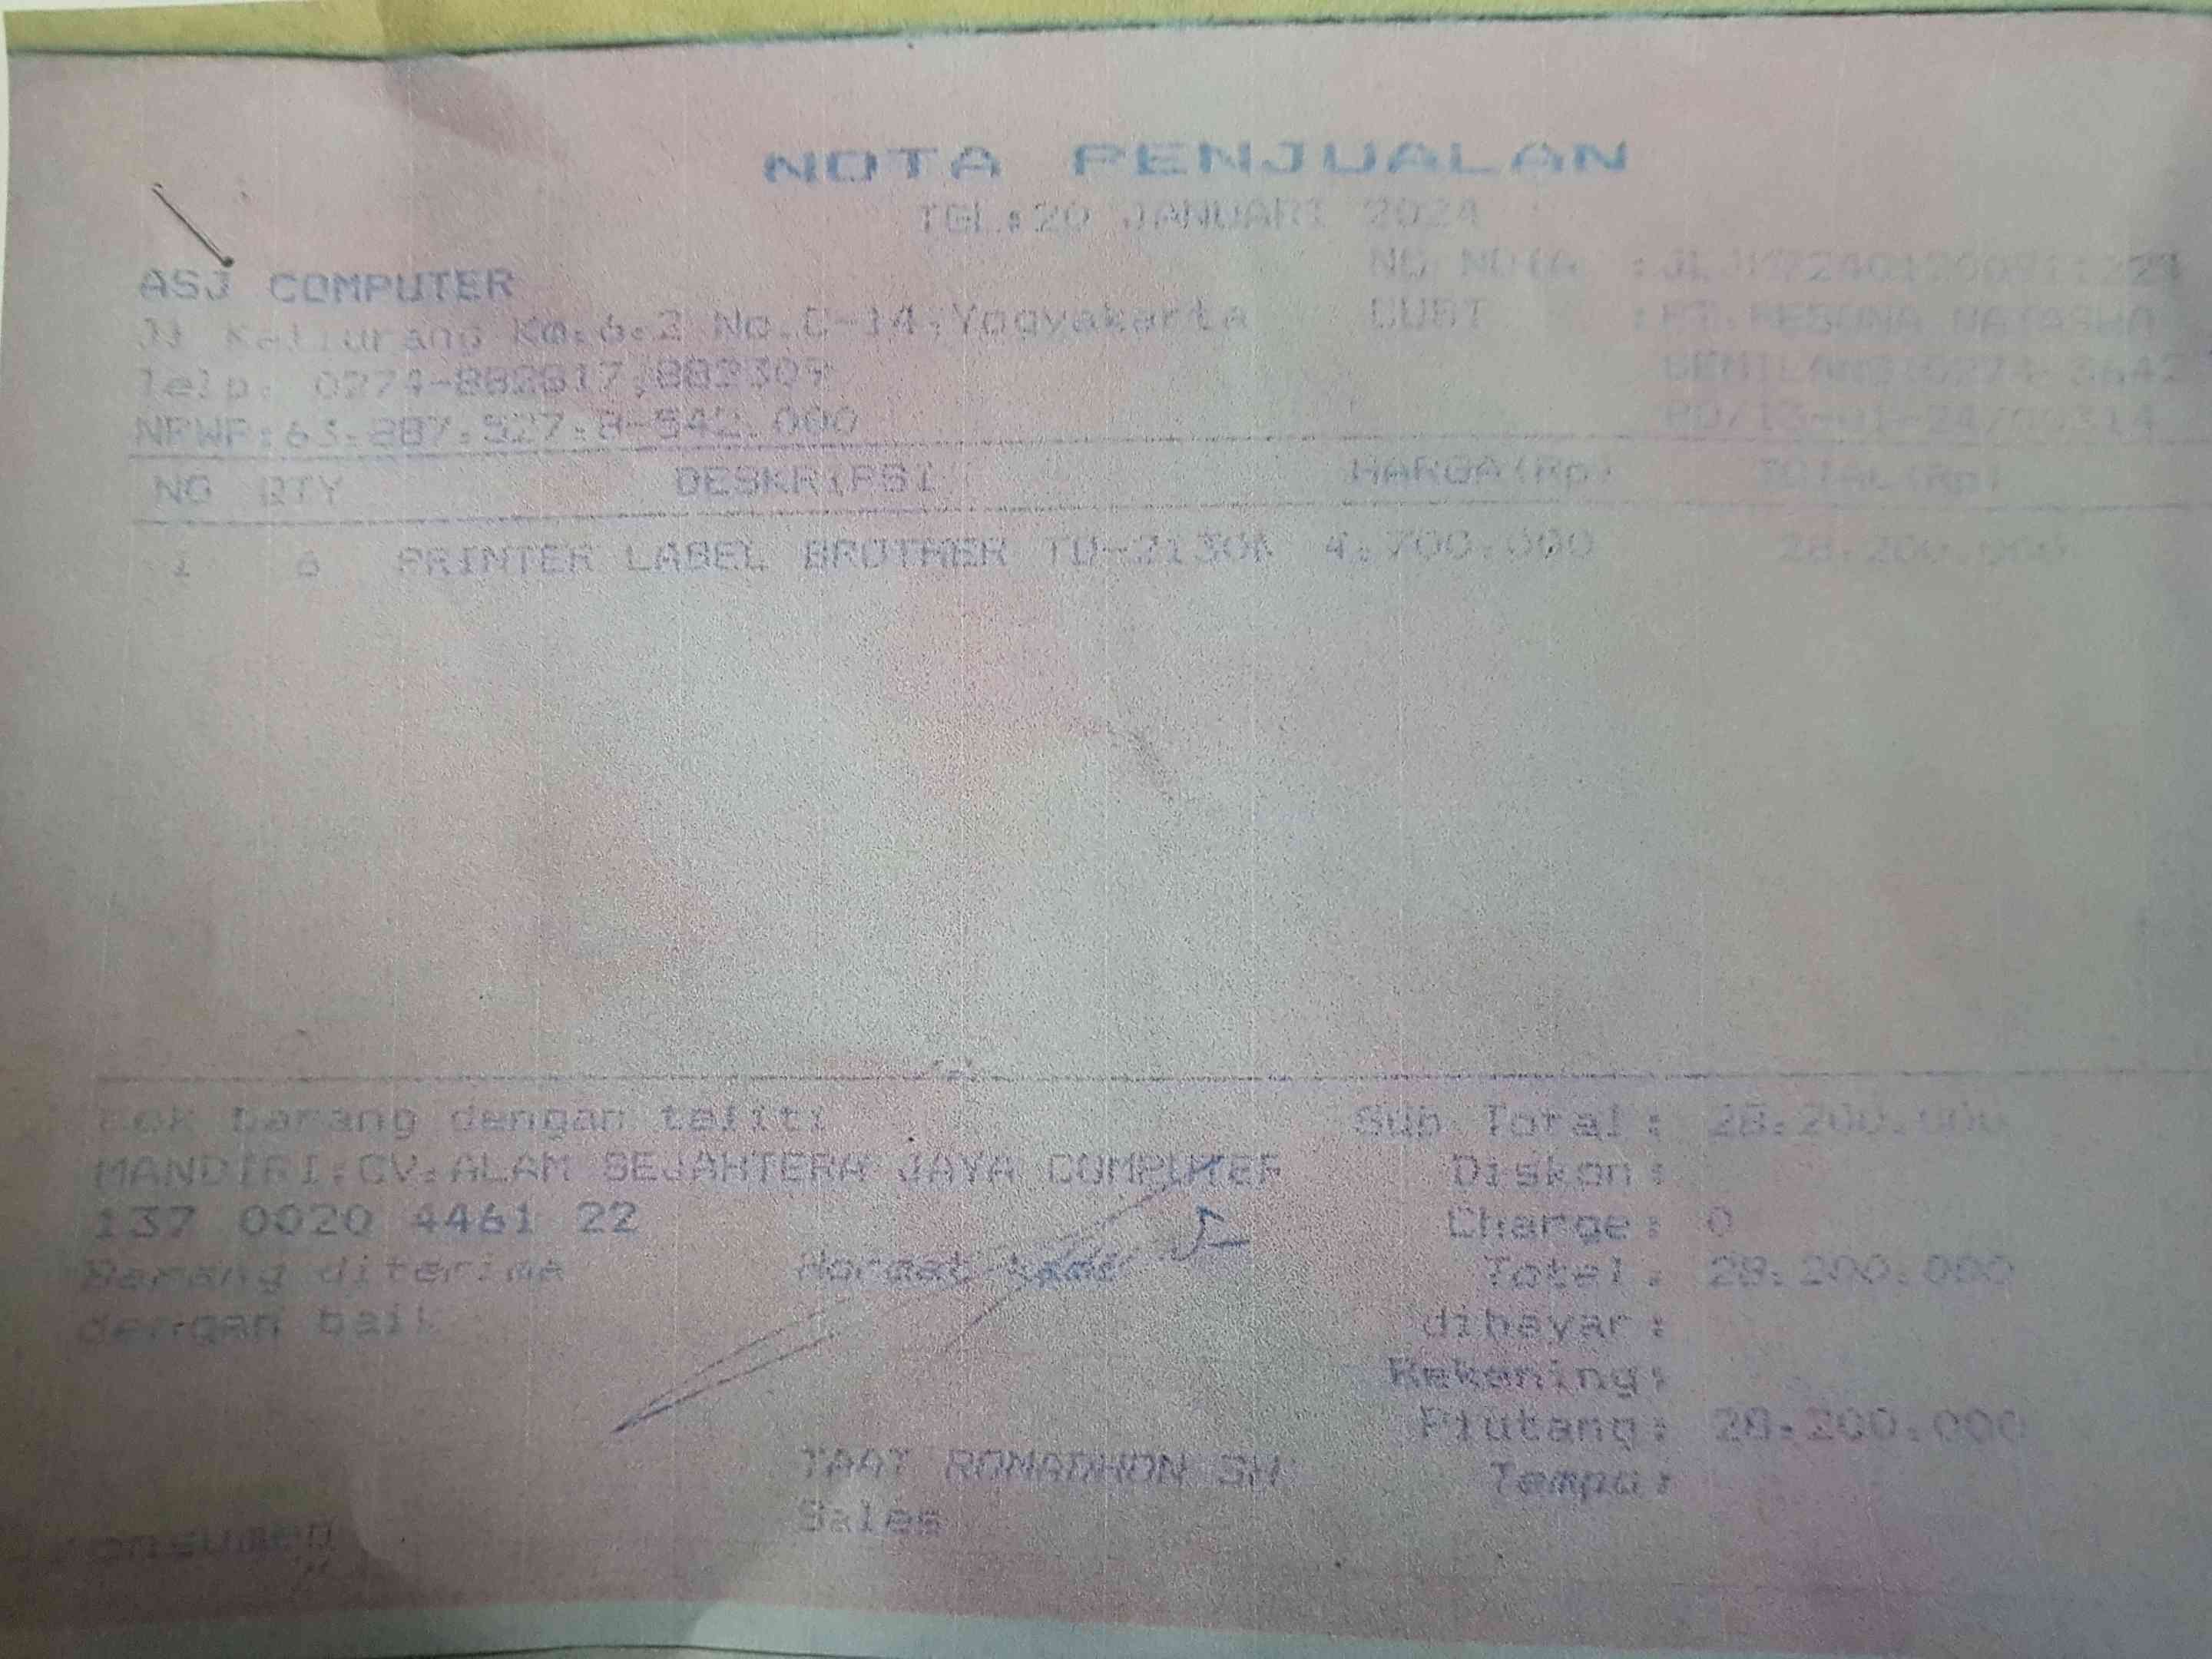 NOTA PENJUALAN
TGL:20 JANUARI 2024
ASJ COMPUTER
NO NOTA :
Jl Kaliurang Km.6.2 No.C-14,Yogyakarta
CUST : PT.
Telp. 0274-882817,882309
NPWP:63.287.527.8-542.000
PO/13-01-24/00314
NO QTY DESKRIPSI HARGA(Rp) TOTAL(Rp)
1 6 PRINTER LABEL BROTHER TD-2130N 4.700.000 28.200.000
Cek barang dengan teliti
Sub Total: 28.200.000
MANDIRI:CV.ALAM SEJAHTERA JAYA COMPUTER
Diskon:
137 0020 4461 22
Change: 0
Barang diterima Hormat kami
Total: 28.200.000
dengan baik
dibayar:
Rekening:
Piutang: 28.200.000
TAAT ROMADHON SH
Tempo:
Sales
Konsumen